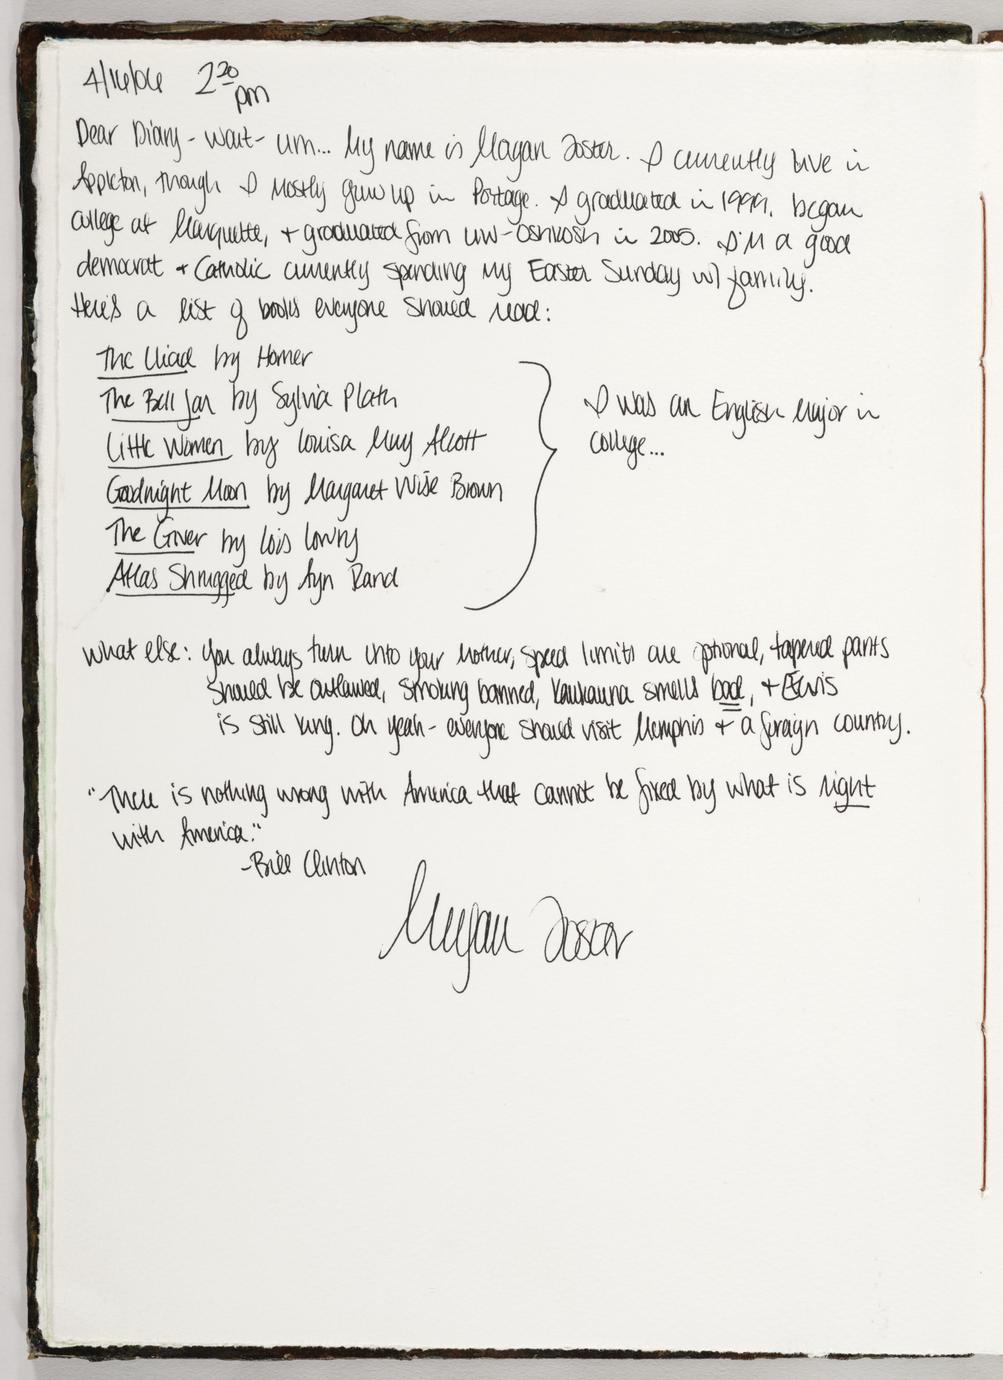 4/16/06 2 20 pm
Dear Diary - wait - um... My name is Magan Foster. I currently live in
Appleton, though I mostly grew up in Portage. I graduated in 1999, began
college at Marquette, + graduated from UW-Oshkosh in 2005. I'm a good
democrat + Catholic currently spending my Easter Sunday w/ family.
Here's a list of books everyone should read:
The Iliad by Homer
The Bell Jar by Sylvia Plath
Little Women by Louisa May Alcott
Goodnight Moon by Margaret Wise Brown
The Giver by Lois Lowry
Atlas Shrugged by Ayn Rand
I was an English Major in
college...
What else: You always turn into your mother, speed limits are optional, tapered pants
should be outlawed, smoking banned, Kaukauna smells bad, + Elvis
is still king. Oh yeah - everyone should visit Memphis + a foreign country.
"There is nothing wrong with America that cannot be fixed by what is right
with America."
-Bill Clinton
Magan Foster